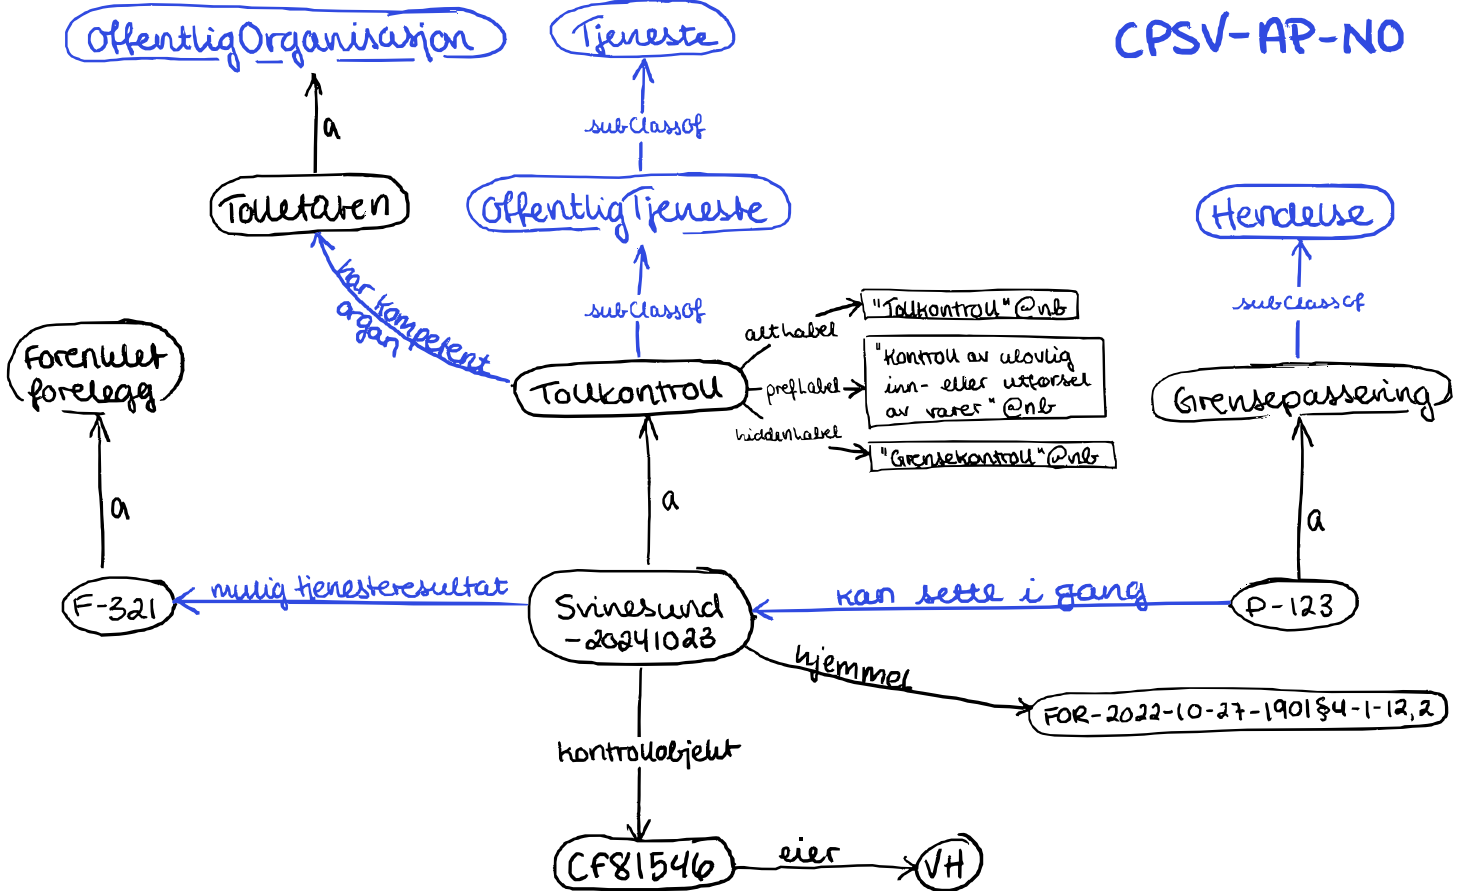 OffentligOrganisasjon
Tjeneste
CPSV-AP-NO
a
subClassOf
Tolletaten
OffentligTjeneste
Hendelse
har kompetent
organ
subClassOf
altLabel
"Tollkontroll"@nb
subClassOf
Forenklet
forelegg
Tollkontroll
prefLabel
"Kontroll av ulovlig
inn- eller utførsel
av varer"@nb
Grensepassering
hiddenLabel
"Grensekontroll"@nb
a
a
a
F-321
mulig tjenesteresultat
Svinesund
-20241023
kan sette i gang
P-123
hjemmel
FOR-2022-10-27-1901§4-1-12,2
kontrollobjekt
CF81546
eier
VH